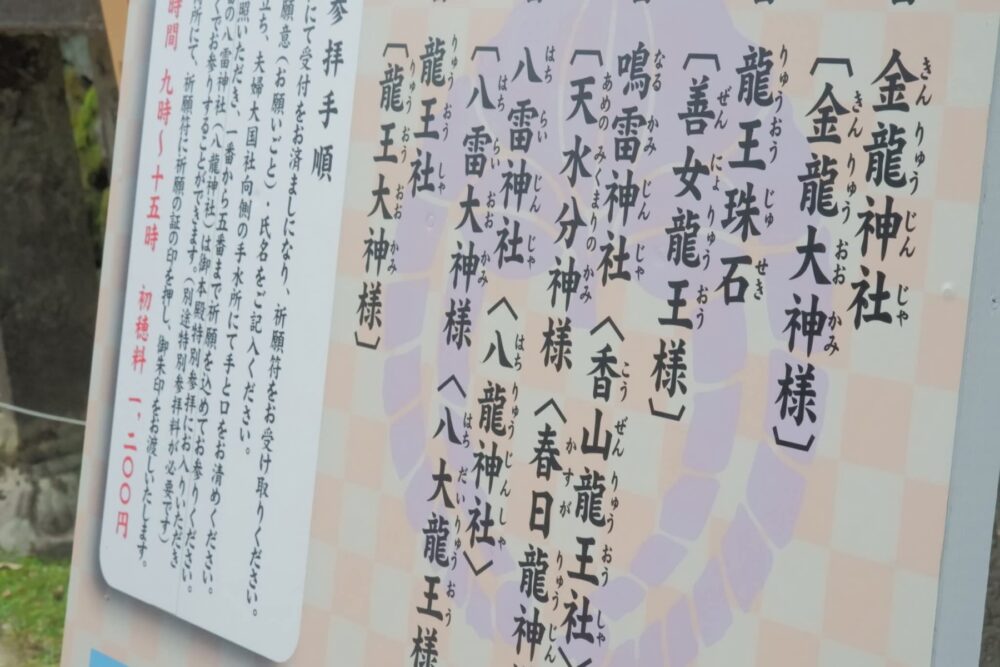 金龍神社
〔金龍大神様〕
龍王珠石
〔善女龍王様〕
鳴雷神社〈香山龍王社〉
〔天水分神様〈春日龍神
八雷神社〈八龍神社〉
〔八雷大神様〈八大龍王様
龍王社
〔龍王大神様〕
参拝手順
にて受付をお済ましになり、祈願符をお受け取りください。
願意（お願いごと）・氏名をご記入ください。
立ち、夫婦大国社向側の手水所にて手と口をお清めください。
照いただき、一番から五番まで祈願を込めてお参りください。
番の八雷神社（八龍神社）は御本殿特別参拝にお入りいただき
くでお参りすることができます。（別途特別参拝料が必要です）
所にて、祈願符に祈願の証の印を押し、御朱印をお渡しいたします。
時間 九時〜十五時 初穂料 一、二〇〇円